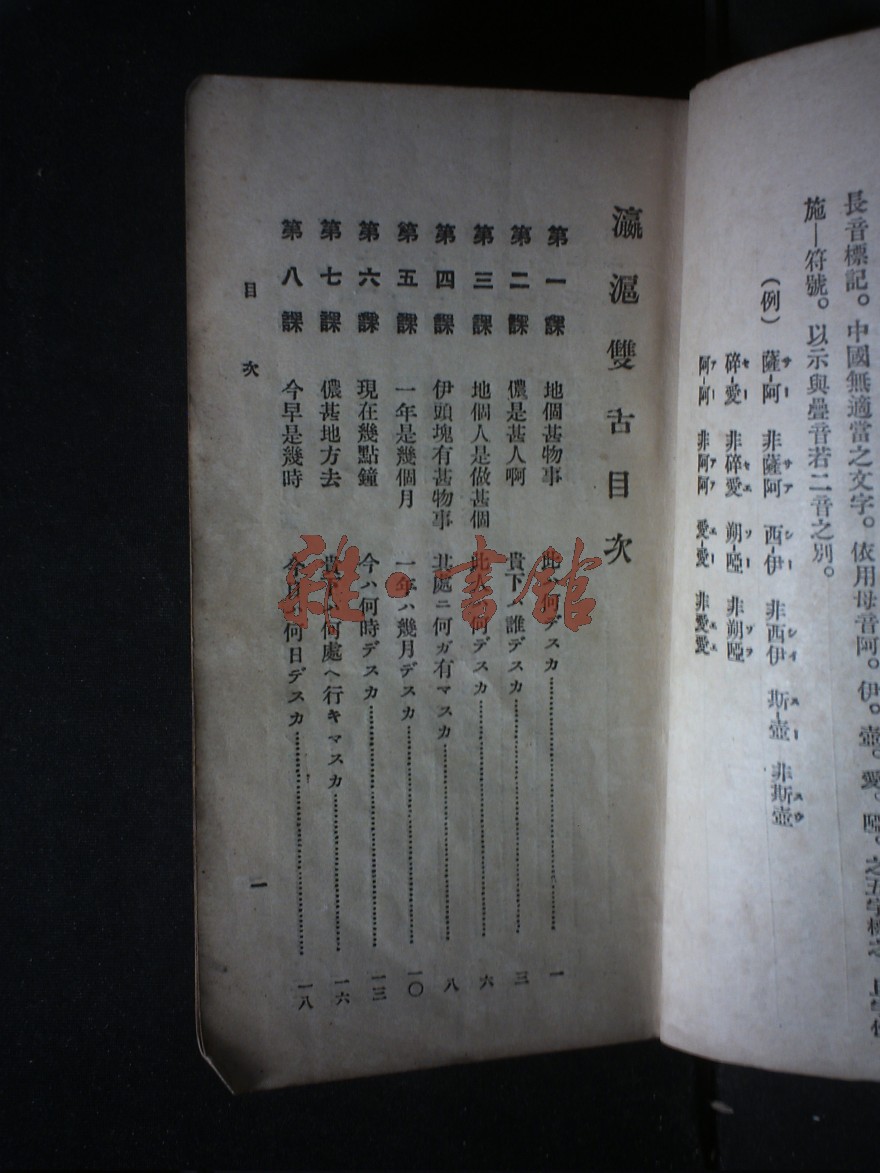 長音標記。中國無適當之文字。依用母音阿。伊。壺。愛。啞。之五字標之
施—符號。以示與疊音若二音之別。
(例) 薩-阿 非薩阿 西-伊 非西伊 斯-壺 非斯壺
碎-愛 非碎愛 朔-啞 非朔啞
阿-阿 非阿阿 愛-愛 非愛愛
瀛滬雙舌目次
第一課 地個甚物事 此 何デスカ 一
第二課 儂是甚人啊 貴下ハ誰デスカ 三
第三課 地個人是做甚個 此人 何デスカ 六
第四課 伊頭塊有甚物事 其處ニ何ガ有マスカ 八
第五課 一年是幾個月 一年ハ幾月デスカ 一〇
第六課 現在幾點鐘 今ハ何時デスカ 一三
第七課 儂甚地方去 貴下ハ何處ヘ行キマスカ 一六
第八課 今早是幾時 今日 何日デスカ 一八
目次 一
雜·書館